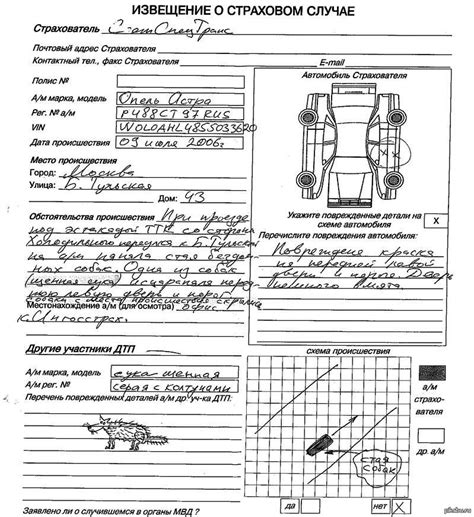 ИЗВЕЩЕНИЕ О СТРАХОВОМ СЛУЧАЕ
Страхователь СпецТранс
Почтовый адрес Страхователя
Контактный тел., факс Страхователя E-mail
Полис №
А/м марка, модель Опель Астра
Рег. № а/м Р488СТ97RUS
VIN W0L0AHL4855033620
Дата происшествия 09 июля 2006г
Место происшествия
Город: Москва
Улица: Б. Тульская
Дом: 43
Обстоятельства происшествия При проезде
под эстакадой ТТК со стороны
Холодильного переулка к Б. Тульской
на а/м напала стая бездом-
ных собак. Одна из собак
(щенная сука) исцарапала перед-
нюю левую дверь и порог
собаки с места происшествия скрылись
Местонахождение а/м (для осмотра) офис
к. Ингосстрах.
Автомобиль Страхователя
X X
Укажите поврежденные детали на
схеме автомобиля X
Перечислите повреждения автомобиля:
Повреждена краска
на передней левой
двери и пороге. Дверь
немного вмята.
Другие участники ДТП
А/м марка, модель сука щенная
А/м рег. № серая с колтунами
Перечень поврежденных деталей а/м др.уч-ка ДТП:
схема происшествия
стая
собак
а/м
страхо-
вателя
др. а/м
Заявлено ли о случившемся в органы МВД ? да нет X
pikabu.ru